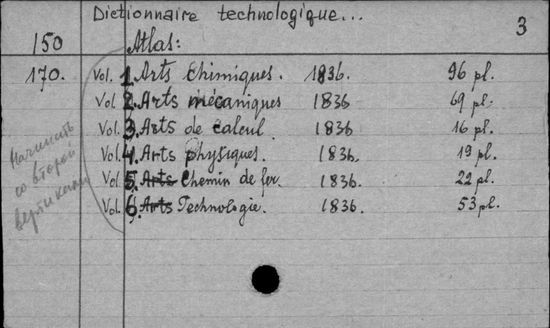 Dictionnaire technologique...
3
150 Atlas:
170. Vol. 1. Arts Chimiques. 1836. 96 pl.
Vol 2. Arts mécaniques 1836 69 pl.
Vol. 3. Arts de calcul 1836 16 pl.
Vol. 4. Arts physiques. 1836. 19 pl.
Vol 5. Arts Chemin de fer. 1836. 22 pl.
Vol. 6. Arts Technologie. 1836. 53 pl.
Начинать
со второй
вертикали